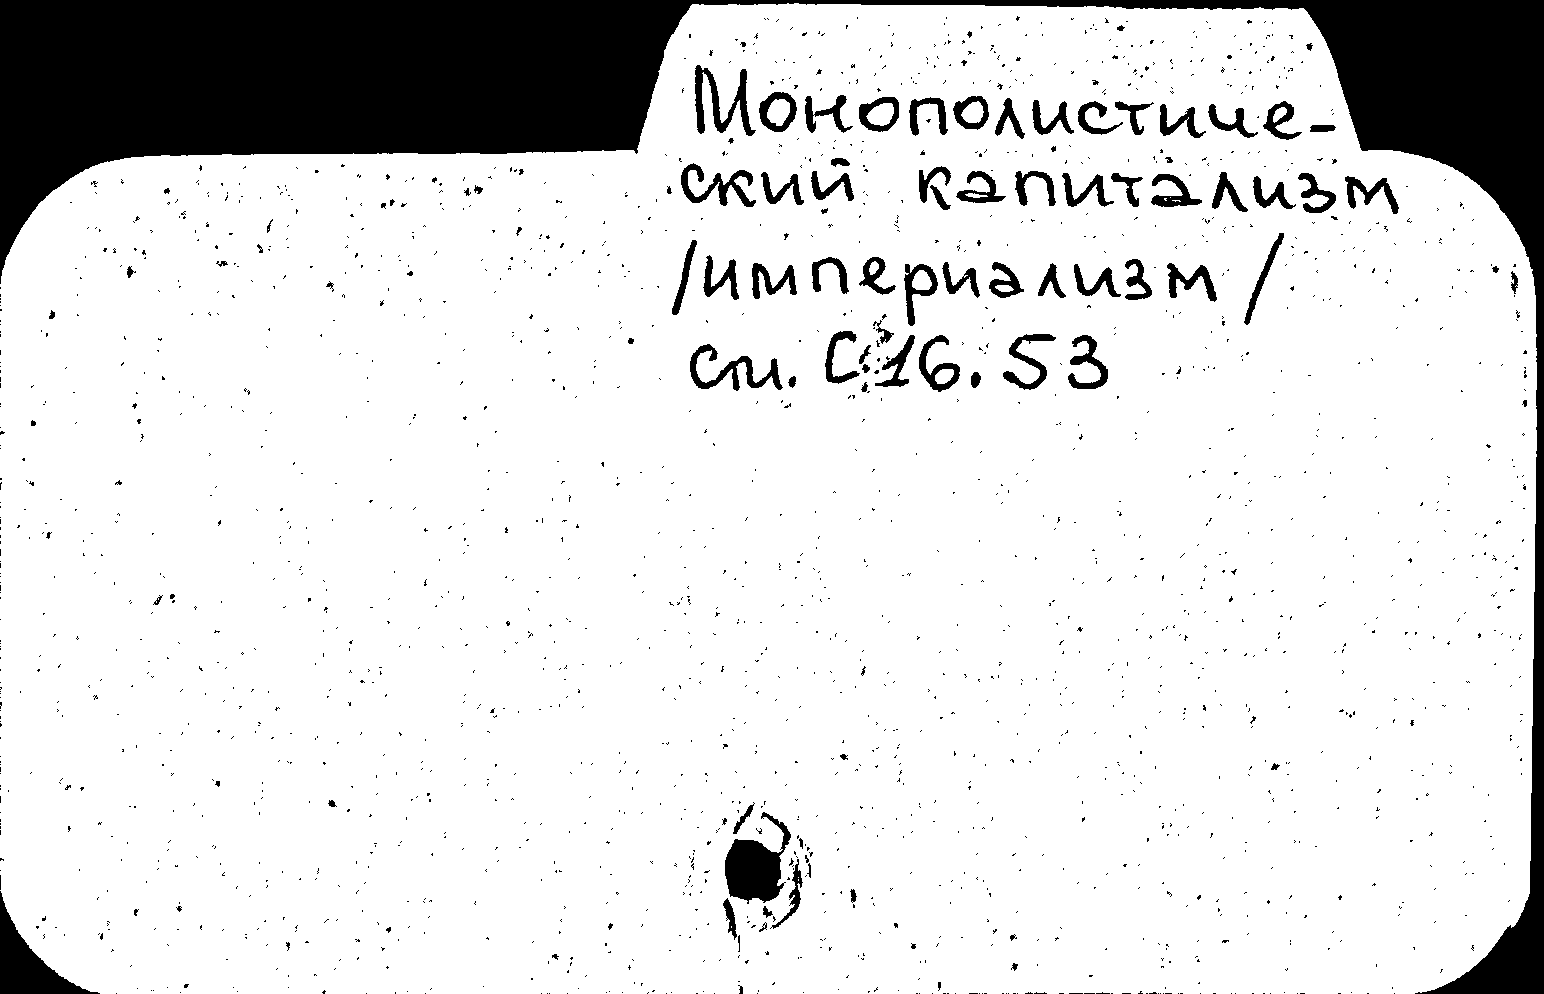 Монополистиче-
ский капитализм
/империализм/
см. С 16.53